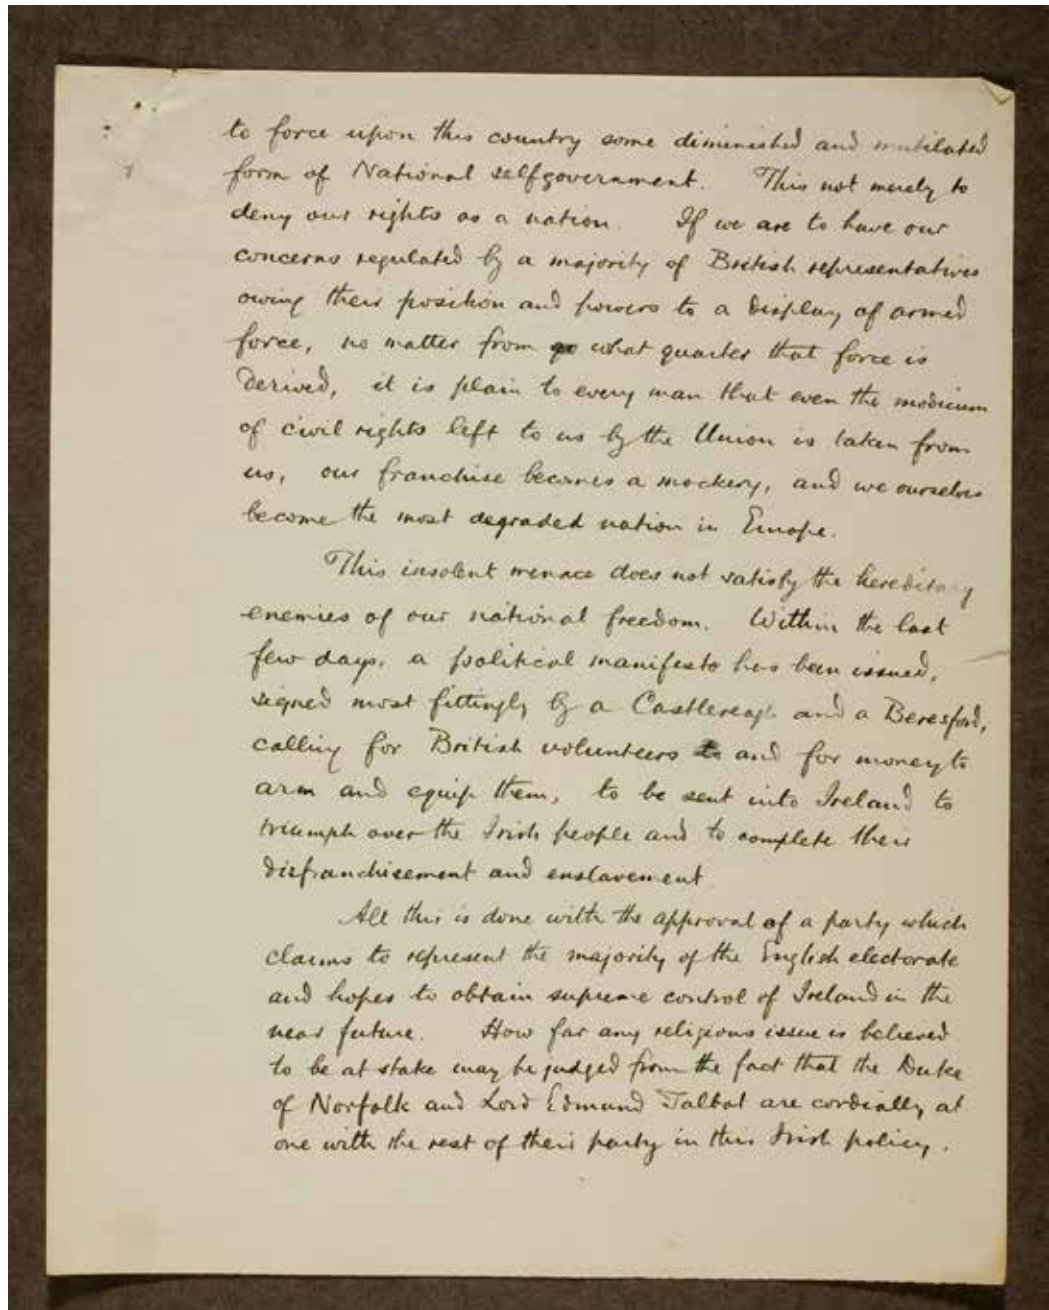 to force upon this country some diminished and mutilated
form of National selfgovernment. This not merely to
deny our rights as a nation. If we are to have our
concerns regulated by a majority of British representatives
owing their position and powers to a display of armed
force, no matter from what quarter that force is
derived, it is plain to every man that even the modicum
of civil rights left to us by the Union is taken from
us, our franchise becomes a mockery, and we ourselves
become the most degraded nation in Europe.
This insolent menace does not satisfy the hereditary
enemies of our national freedom. Within the last
few days, a political manifesto has been issued,
signed most fittingly by a Castlereagh and a Beresford,
calling for British volunteers and for money to
arm and equip them, to be sent into Ireland to
triumph over the Irish people and to complete their
disfranchisement and enslavement
All this is done with the approval of a party which
claims to represent the majority of the English electorate
and hopes to obtain supreme control of Ireland in the
near future. How far any religious issue is believed
to be at stake may be judged from the fact that the Duke
of Norfolk and Lord Edmund Talbot are cordially at
one with the rest of their party in this Irish policy.